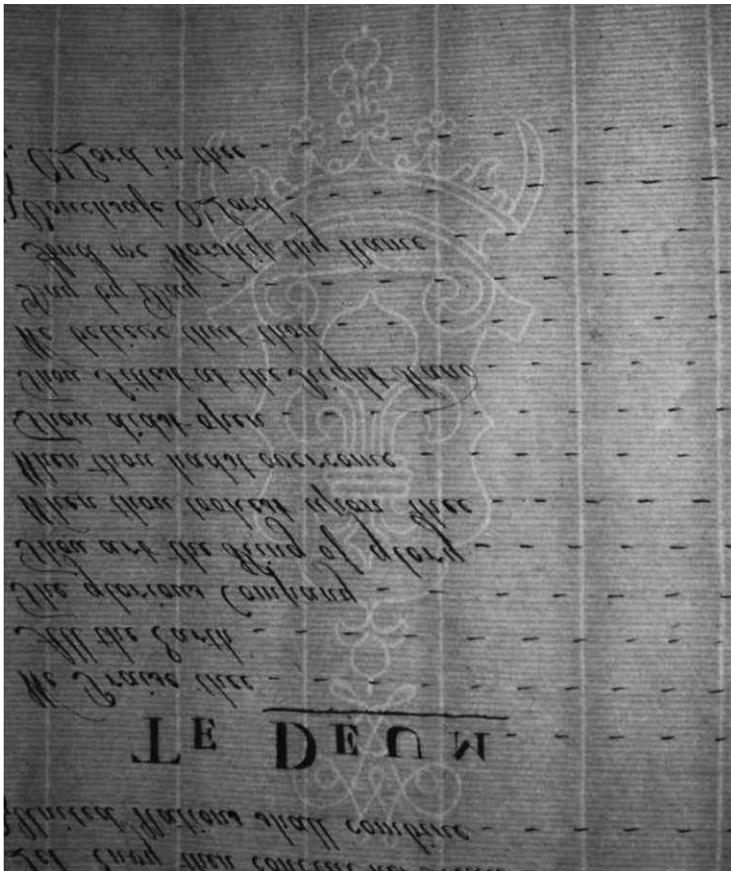 Let Envy then conceal her
United Nations shall combine
TE DEUM
We Praise thee
All the Earth
The glorious Company
Thou art the King of glory
When thou tookest upon thee
When thou hadst overcome
Thou didst open
Thou Sittest at the Right Hand
We believe that thou
Day by Day
And we Worship thy Name
Vouchsafe O Lord
O Lord in thee